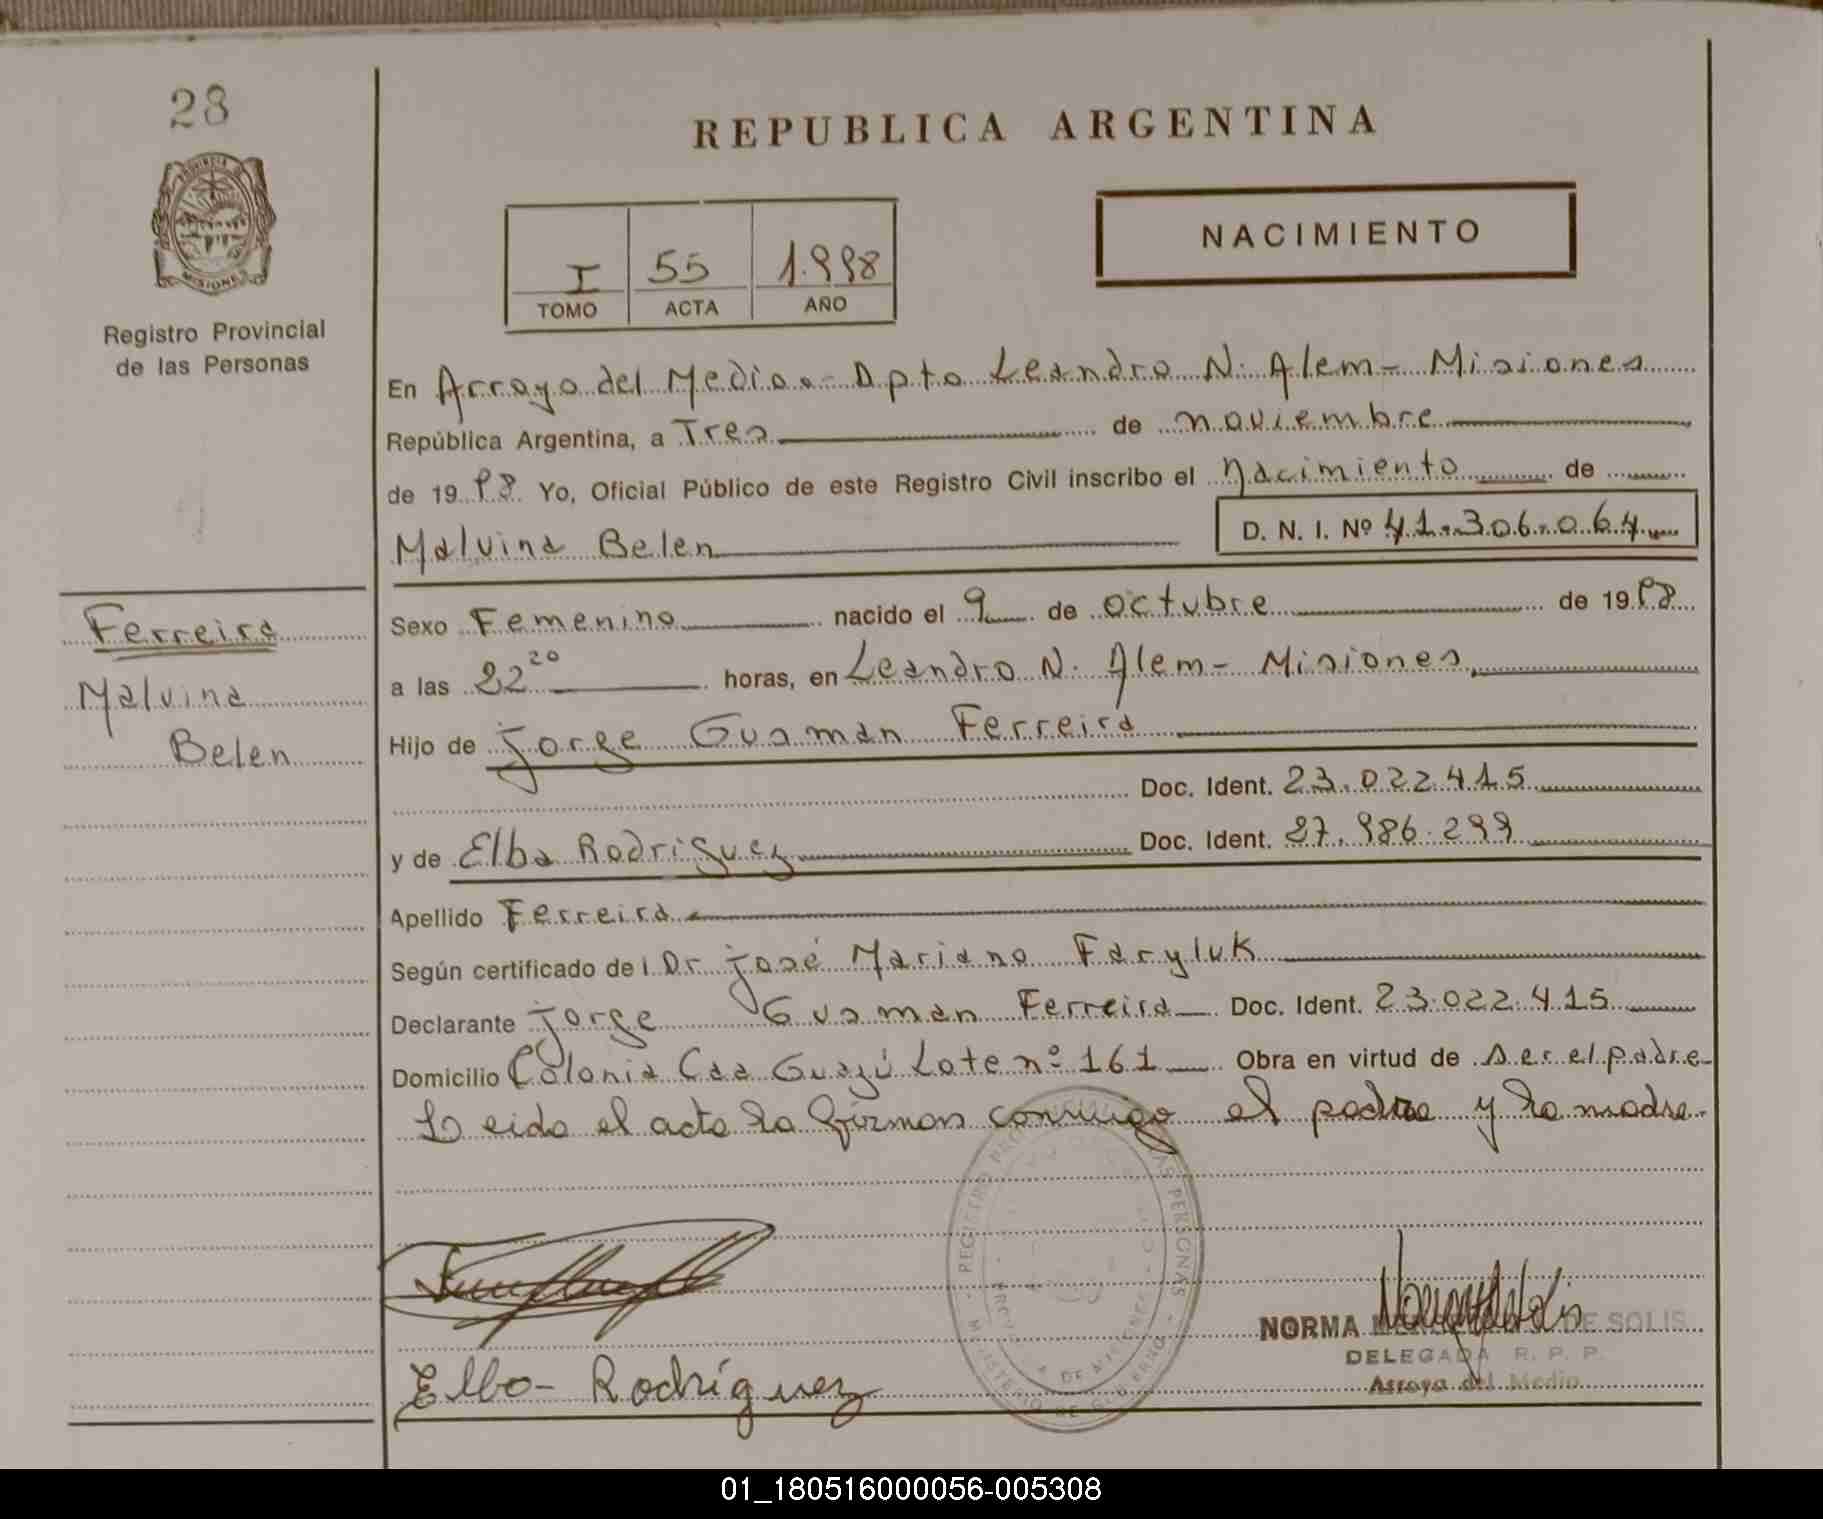 28
REPUBLICA ARGENTINA
PROVINCIA D
MISIONES
Registro Provincial
de las Personas
I 55 1.998
TOMO ACTA AÑO
NACIMIENTO
En Arroyo del Medio - Dpto Leandro N. Alem - Misiones
República Argentina, a Tres de noviembre
de 1998 Yo, Oficial Público de este Registro Civil inscribo el Nacimiento de
Malvina Belen D. N. I. Nº 41.306.064
Ferreira
Malvina
Belen
Sexo Femenino nacido el 9 de octubre de 1998
a las 22 20 horas, en Leandro N. Alem - Misiones
Hijo de Jorge Gusman Ferreira
Doc. Ident. 23.022.415
y de Elba Rodriguez Doc. Ident. 27.986.299
Apellido Ferreira
Según certificado del Dr José Mariano Faryluk
Declarante Jorge Gusman Ferreira Doc. Ident. 23.022.415
Domicilio Colonia Caa Guazú Lote nº 161 Obra en virtud de ser el padre
Leida el acta la firman conmigo el padre y la madre.
REGISTRO PROVINCIAL DE LAS PERSONAS
MINISTERIO DE GOBIERNO
NORMA DE SOLIS
DELEGADA R. P. P.
Arroyo del Medio
Elba - Rodríguez
01_180516000056-005308